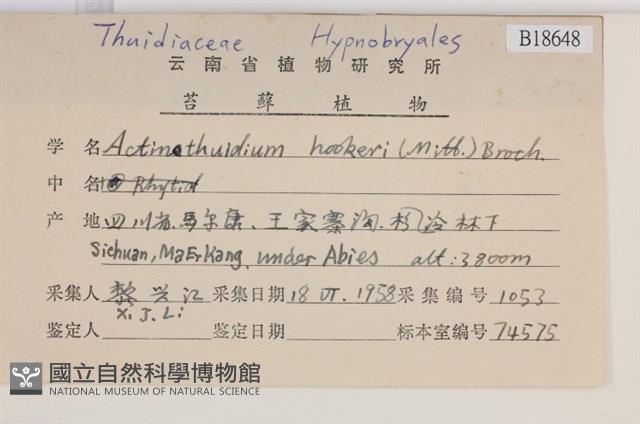 Thuidiaceae Hypnobryales B18648
云南省植物研究所
苔藓植物
学名 Actinothuidium hookeri (Mitt.) Broth.
中名 Rhytid
产地 四川省.马尔康、王家寨沟.杉冷林下
Sichuan, MaErKang, under Abies alt: 3800m
采集人 黎兴江 采集日期 18 VI. 1958 采集编号 1053
X. J. Li
鉴定人 鉴定日期 标本室编号 74575
國立自然科學博物館
NATIONAL MUSEUM OF NATURAL SCIENCE